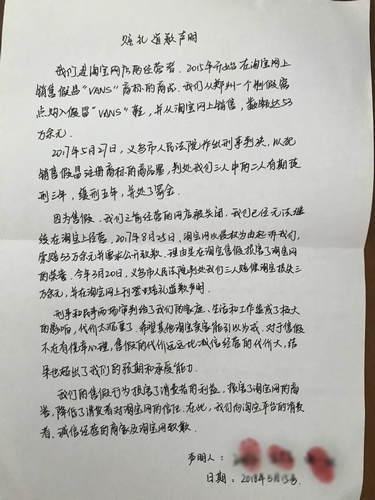 赔礼道歉声明
我们是淘宝网店的经营者。2015年开始在淘宝网上
销售假冒“VANS”商标的商品。我们从郑州一个制假窝
点购入假冒“VANS”鞋，并从淘宝网上销售，数额达53
万余元。
2017年5月27日，义乌市人民法院作出刑事判决，以犯
销售假冒注册商标的商品罪，判处我们三人中的二人有期徒
刑三年，缓刑五年，并处了罚金。
因为售假，我们之前经营的网店被关闭，我们已经无法继
续在淘宝上经营。2017年8月25日，淘宝网以侵权为由起诉我们，
索赔53万余元并要求公开致歉。理由是在淘宝售假损害了淘宝网
的荣誉。今年3月20日，义乌市人民法院判处我们三人赔偿淘宝损失三
万余元，并在淘宝网上刊登赔礼道歉声明。
刑事和民事两场审判给了我们的家庭、生活和工作造成了极大
的影响，代价太沉重了，希望其他淘宝卖家能引以为戒，对于售假
不在有侥幸心理，售假的代价远远比诚信经营的代价大，结
果也超出了我们的预期和承受能力。
我们的售假行为损害了消费者的利益，损害了淘宝网的商
誉，降低了消费者对淘宝网的信任。在此，我们向淘宝平台的消费
者、诚信经营的商家及淘宝网致歉。
声明人：
日期：2018年5月15日